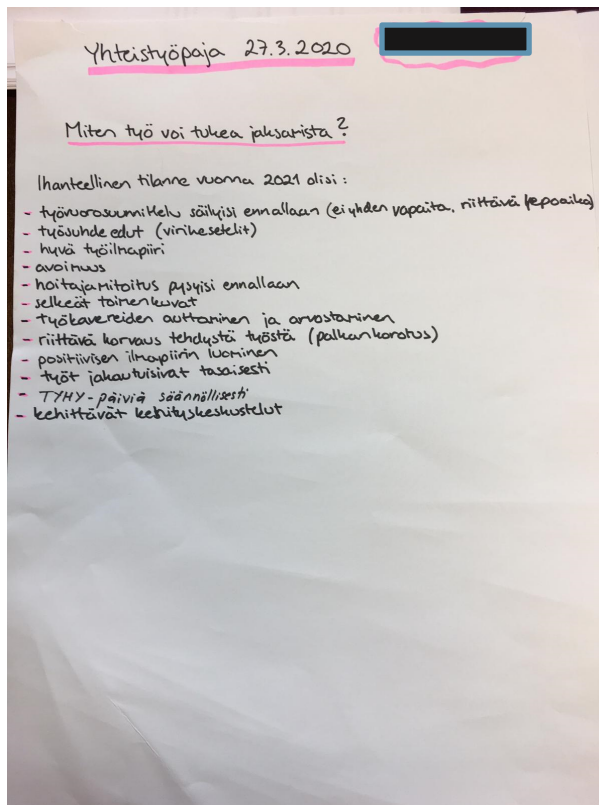 Yhteistyöpaja 27.3.2020
Miten työ voi tukea jaksamista?
Ihanteellinen tilanne vuonna 2021 olisi:
- työvuorosuunnittelu säilyisi ennallaan (ei yhden vapaita, riittävä lepoaika)
- työsuhde edut (virikesetelit)
- hyvä työilmapiiri
- avoimuus
- hoitajamitoitus pysyisi ennallaan
- selkeät toimenkuvat
- työkavereiden auttaminen ja arvostaminen
- riittävä korvaus tehdystä työstä (palkankorotus)
- positiivisen ilmapiirin luominen
- työt jakautuisivat tasaisesti
- TYHY-päiviä säännöllisesti
- kehittävät kehityskeskustelut